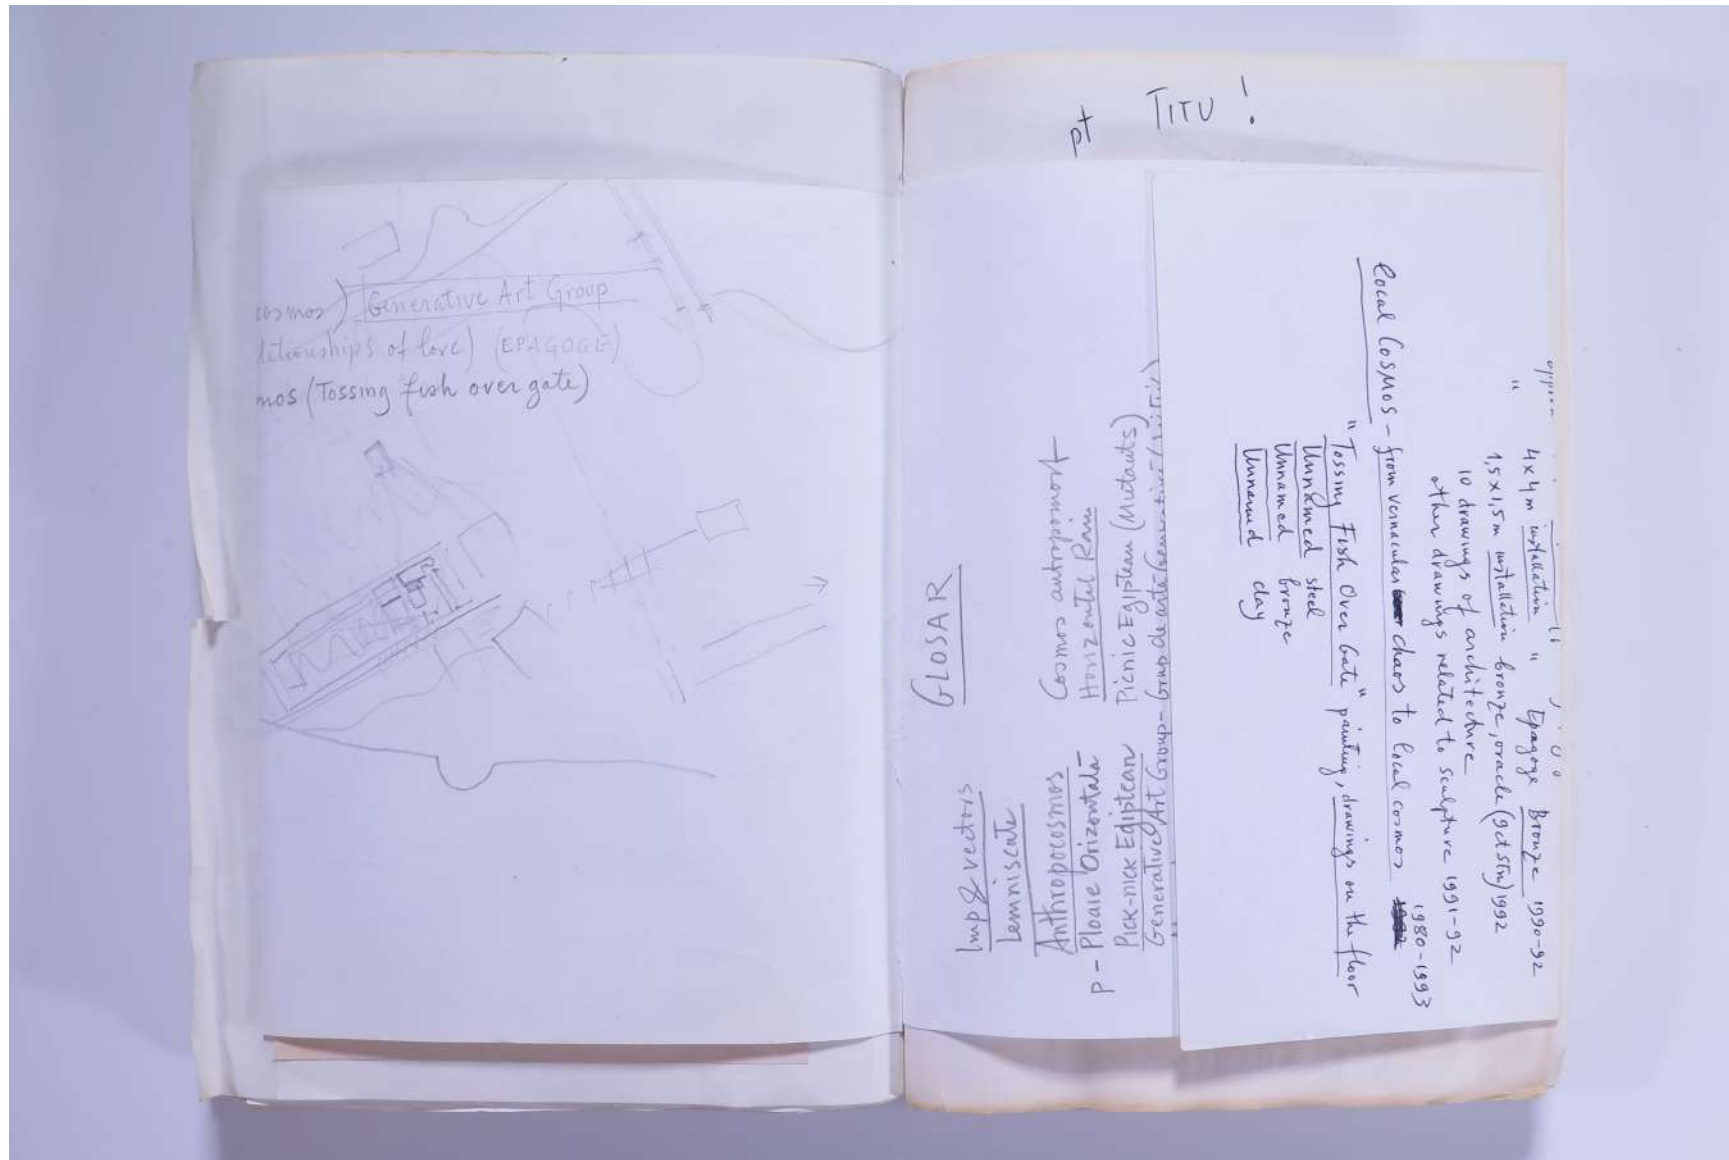 cosmos) Generative Art Group
lationships of love) (EPAGOGE)
mos (Tossing fish over gate)
pt TITU!
GLOSAR
Imp & vectors
Lemniscate
Anthropocosmos Cosmos antropomorf
p - Ploaie Orizontală Horizontal Rain
Pick-nick Ediptean Picnic Egiptean (Mutants)
Generative Art Group - Grup de artă
" 4x4 m installation " Epagoge Bronze 1990-92
" 1,5x1,5m installation bronze, oracle 1992
10 drawings of architecture
other drawings related to sculpture 1991-92
1980-1993
Local Cosmos - from vernacular chaos to local cosmos
"Tossing Fish Over Gate" painting, drawings on the floor
Unnamed steel
Unnamed bronze
Unnamed clay